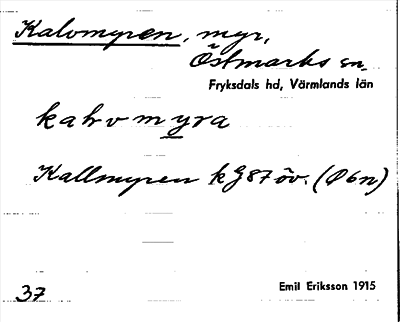 Kalvmyren, myr,
Östmarks sn.
Fryksdals hd, Värmlands län
kalvmyra
Kallmyren kg 87 öv. (Ø6n)
37
Emil Eriksson 1915